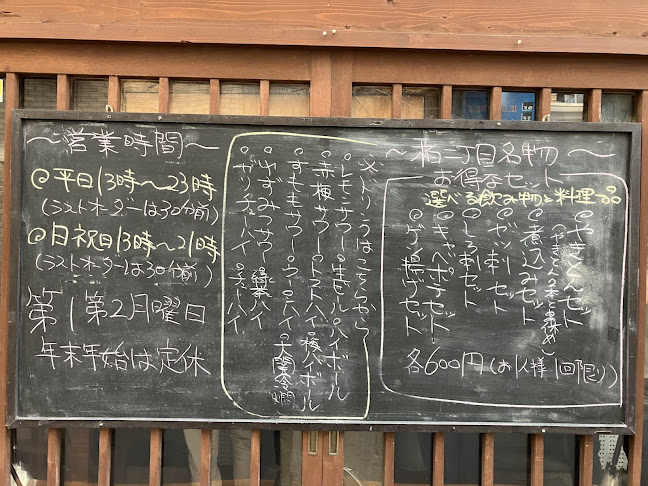 〜営業時間〜
◎平日13時〜23時
(ラストオーダーは30分前)
◎日祝日13時〜21時
(ラストオーダーは30分前)
第1第2月曜日
年末年始は定休
※ドリンクはこちらから
◦レモンサワー ◦生ビール ◦ハイボール
◦赤梅サワー ◦トマトハイ ◦梅ハイボール
◦すももサワー ◦ウーハイ ◦大関冷燗
◦ゆずみつサワー ◦緑茶ハイ
◦ガリチューハイ
〜柏二丁目名物〜
お得なセット
選べる飲み物と料理一品
◦やきとんセット
◦煮込みセット
◦ガツ刺セット
◦しろ刺セット
◦キャベポテセット
◦ゲソ揚げセット
各600円(お1人様1回限り)